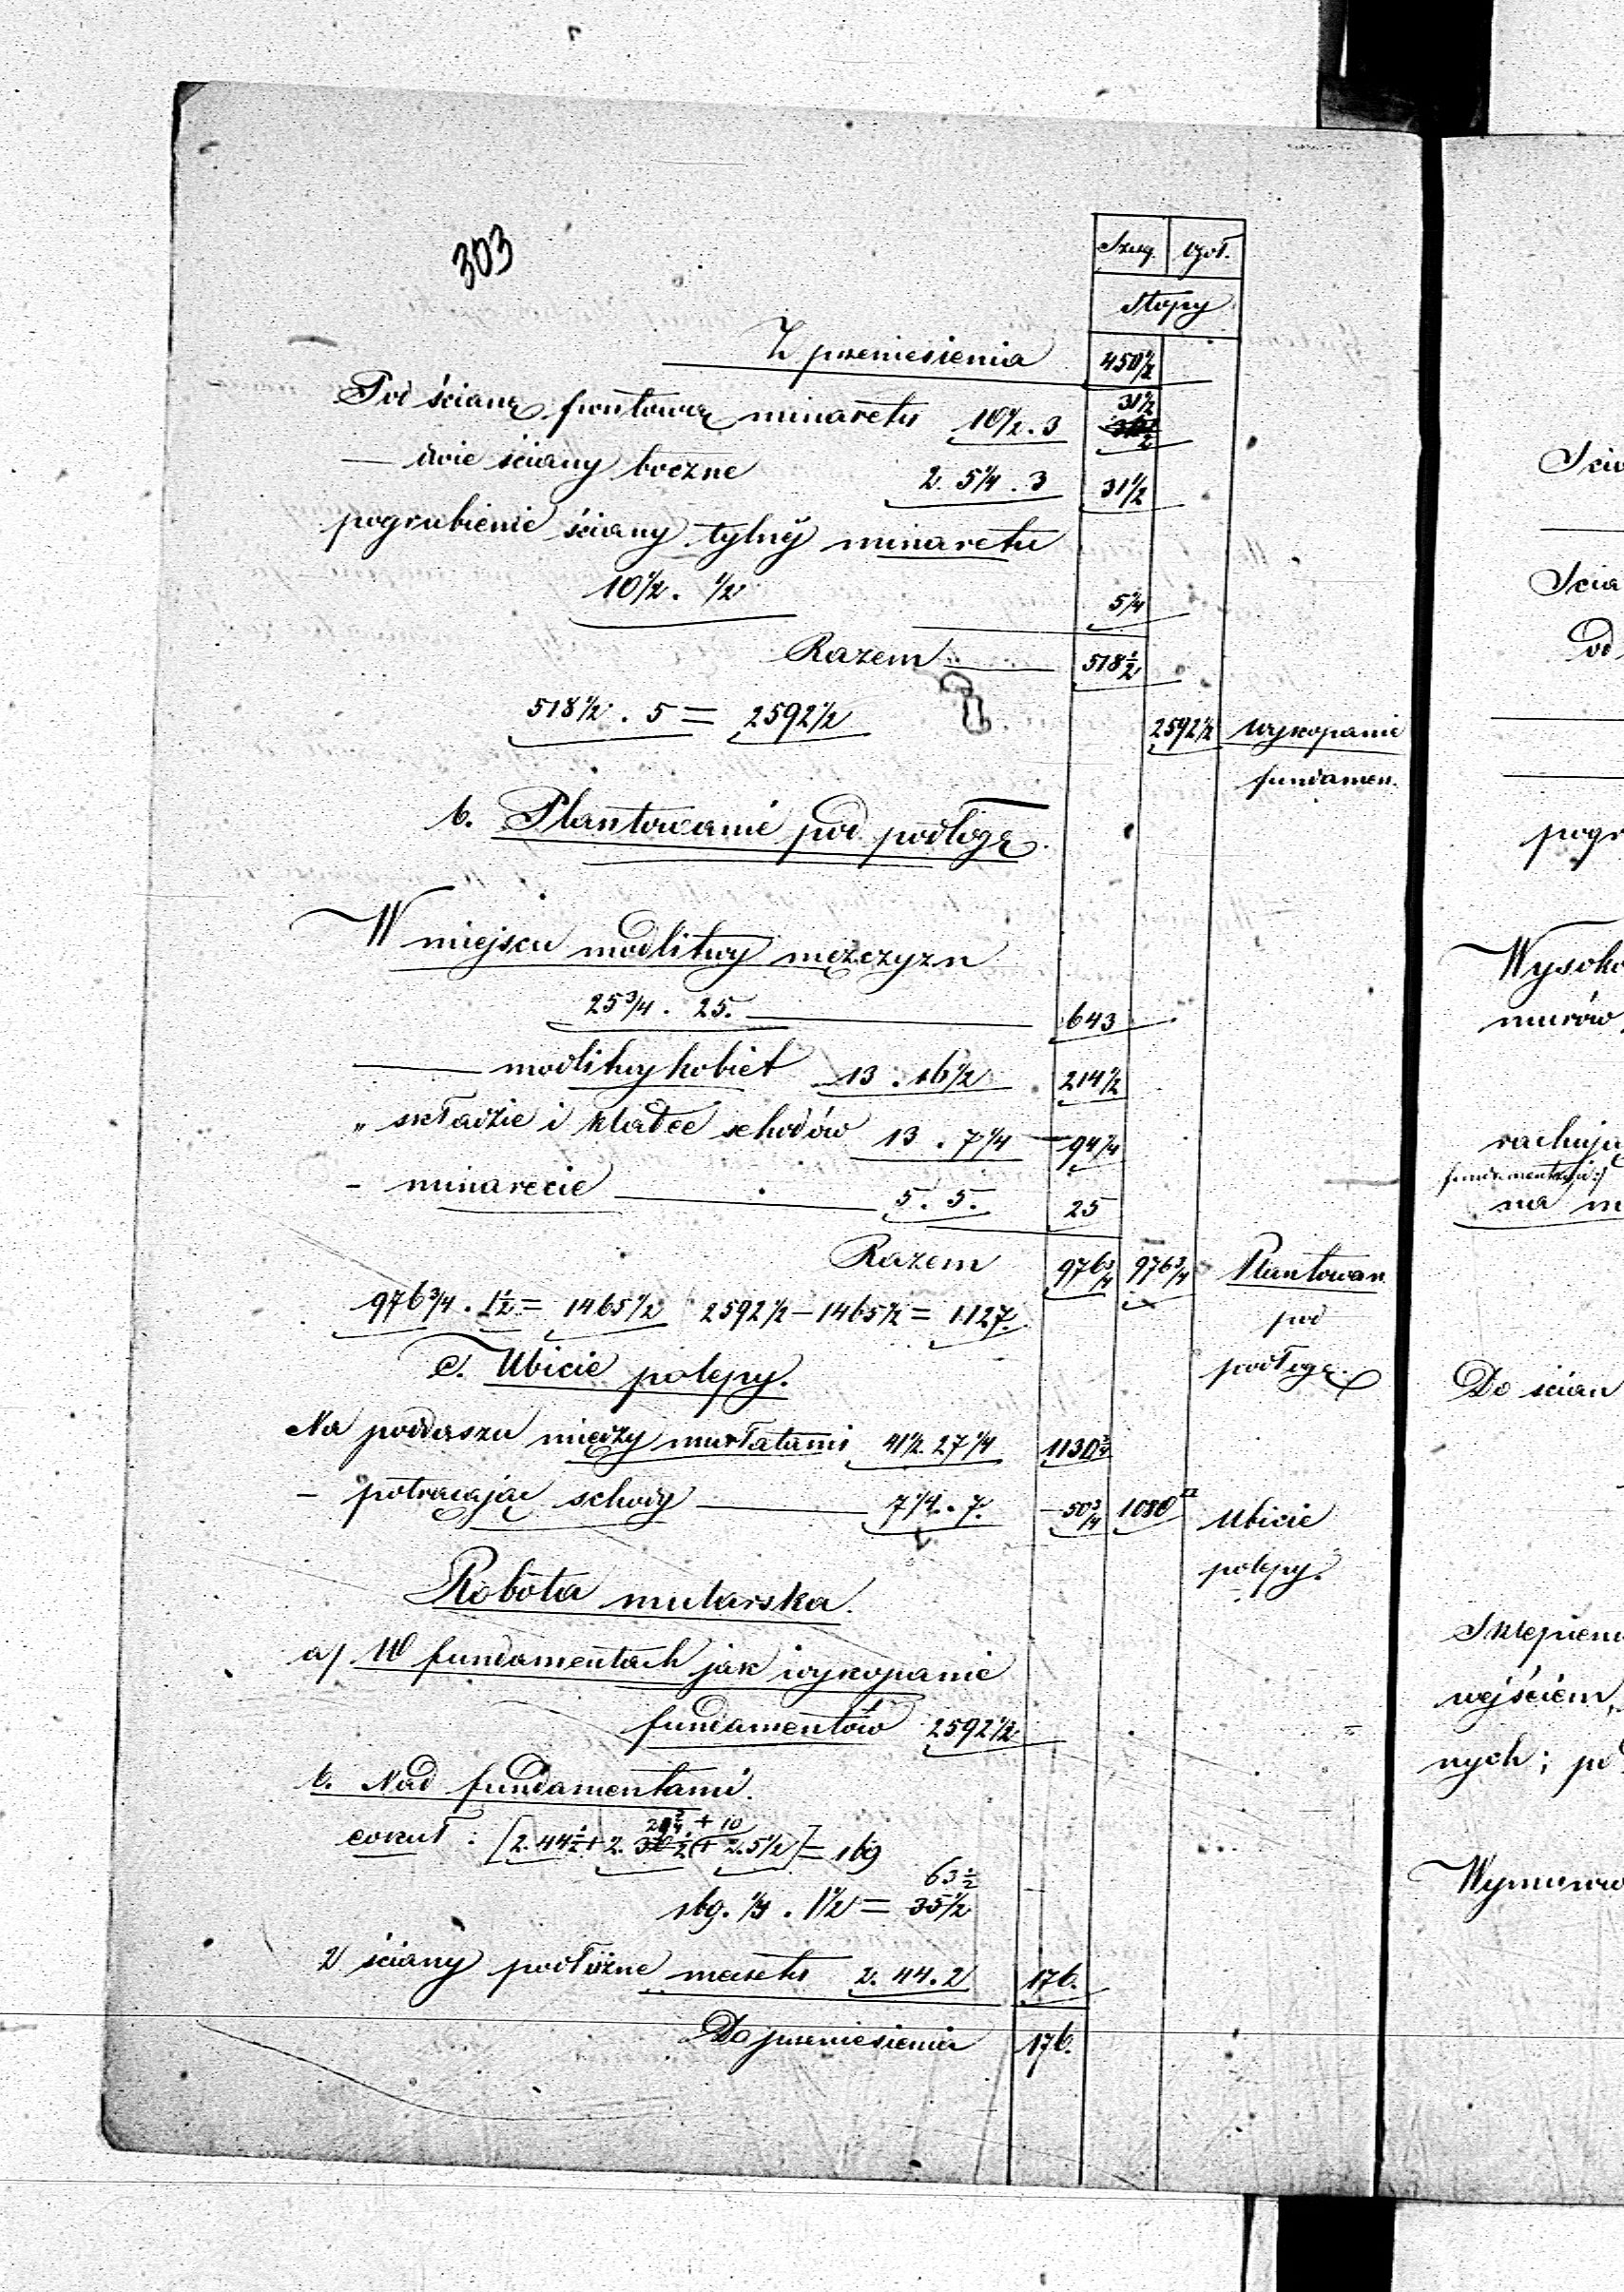 303
Szcz. Ogół.
Stopy
Z przeniesienia 450 1/2
Pod ścianę frontową minaretu 10 1/2 . 3 31 1/2
— dwie ściany boczne 2. 5 1/4 . 3 31 1/2
pogrubienie ściany tylnéj minaretu
10 1/2 . 1/2 5 1/4
Razem 518 1/2
518 1/2 . 5 = 2592 1/2 2592 1/2 wykopanie
fundamen.
b. Plantowanie pod podłogę.
W miejscu modlitwy mężczyzn
25 3/4 . 25. — 643
— modlitwy kobiet 13 . 16 1/2 214 1/2
„ składzie i klatce schodów 13 . 7 1/4 — 94 1/4
- minarecie — 5. 5. 25
Razem 976 3/4 976 3/4 Plantowan.
976 3/4 . 1 1/2 = 1465 1/2 2592 1/2 – 1465 1/2 = 1127. pod
podłogę.
c. Ubicie polepy.
Na poddaszu między murłatami 41 1/2 27 1/4 1130 3/4
— potrącając schody — 7 1/4 . 7. – 50 3/4 1080 Ubicie
polepy.
Robota mularska.
a/ W fundamentach jak wykopanie
fundamentów 2592 1/2
b. Nad fundamentami.
cokuł : [2. 44 1/2 + 2. + 10 + 2. 5 1/2] = 169
63 1/2
169. 1/4 . 1 1/2 = 35 1/2
2 ściany podłużne meczetu 2. 44. 2 176.
Do przeniesienia 176.
Do
pogr
murów
rachują
na m
Do ścian
wejściem,
nych; po